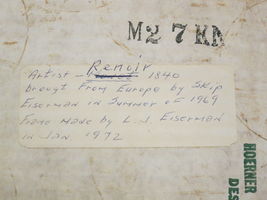 M27KN
Renoir
Artist - 1840
brougt from Europe by Skip
Eiserman in Summer of 1969
Fame made by L.J. Eiserman
in Jan 1972
HOERNER
DES